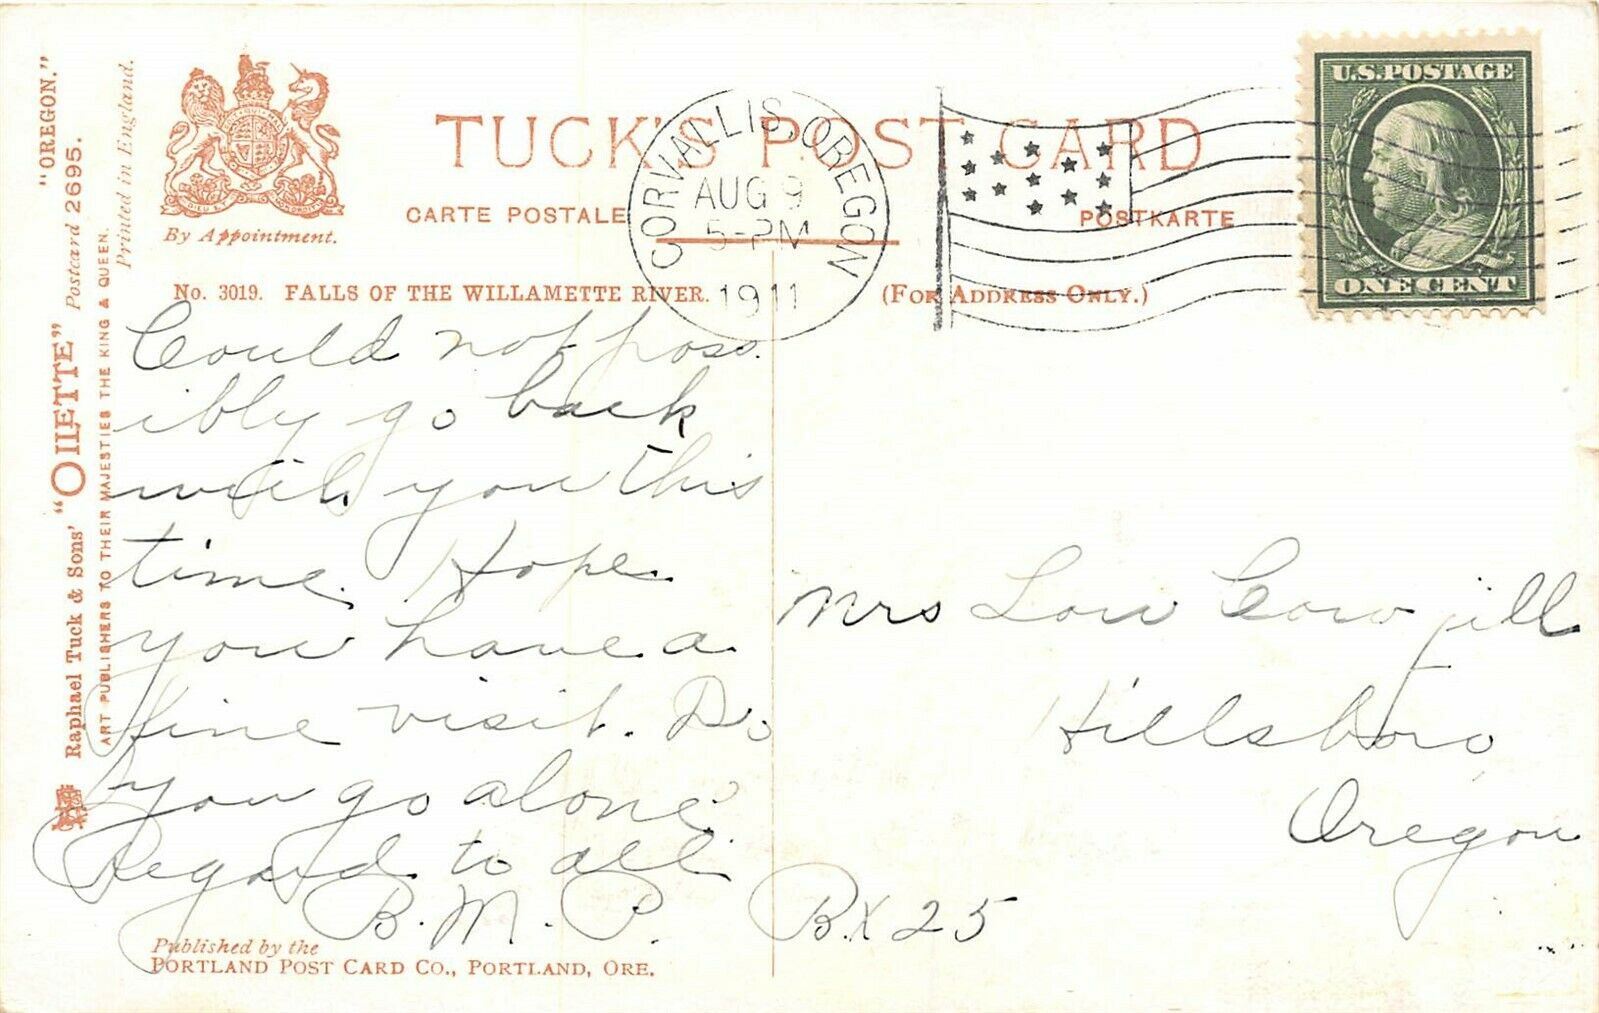 "OREGON."
Postcard 2695.
Printed in England.
Raphael Tuck & Sons' "OILETTE"
ART PUBLISHERS TO THEIR MAJESTIES THE KING & QUEEN.
By Appointment.
TUCK'S POST CARD
CARTE POSTALE
POSTKARTE
No. 3019. FALLS OF THE WILLAMETTE RIVER.
(FOR ADDRESS ONLY.)
CORVALLIS, OREGON
AUG 9
5-PM
1911
U.S. POSTAGE
ONE CENT
Could not poss
ibly go back
with you this
time. Hope
you have a
fine visit. Do
you go alone?
Regard to all
B. M. P.
Mrs Lou Cowgill
Hillsboro
Oregon
Bx 25
Published by the
PORTLAND POST CARD CO., PORTLAND, ORE.